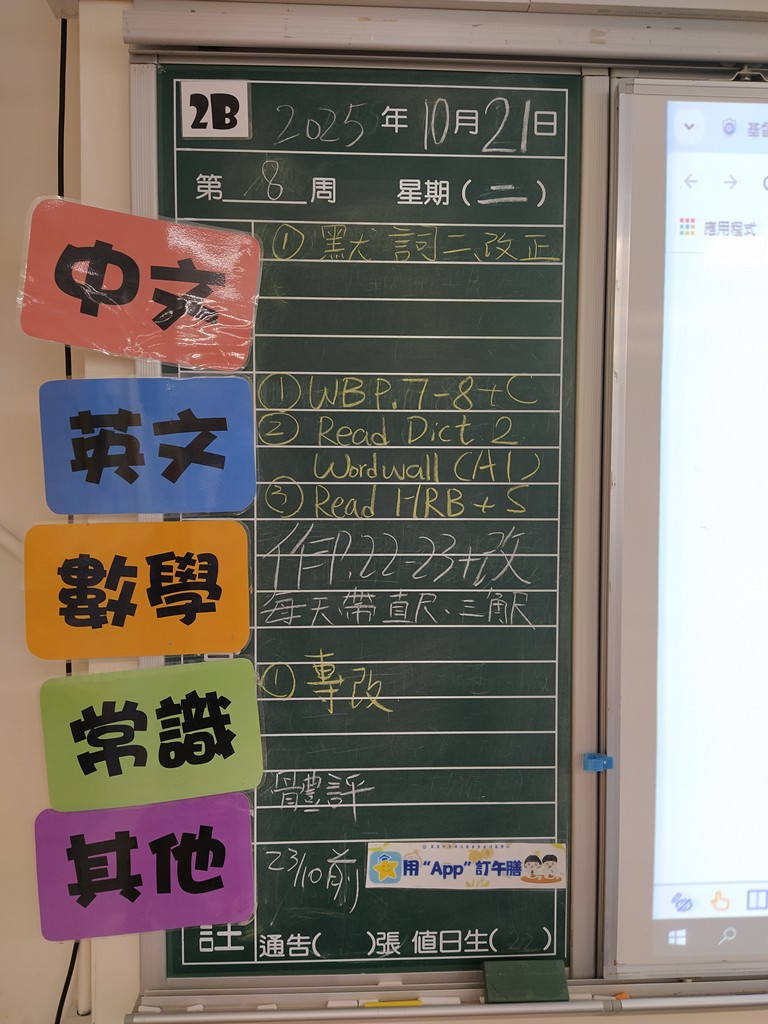 2B 2025年10月21日
第8周 星期(二)
中文
① 默詞二改正
英文
① WB P.7-8+C
② Read Dict 2
Wordwall (A1)
③ Read HRB + S
數學
作P.22-23+改
每天帶直尺、三角尺
常識
① 專改
其他
體評
23/10前 用“App”訂午膳
註 通告( )張 值日生(22)
應用程式